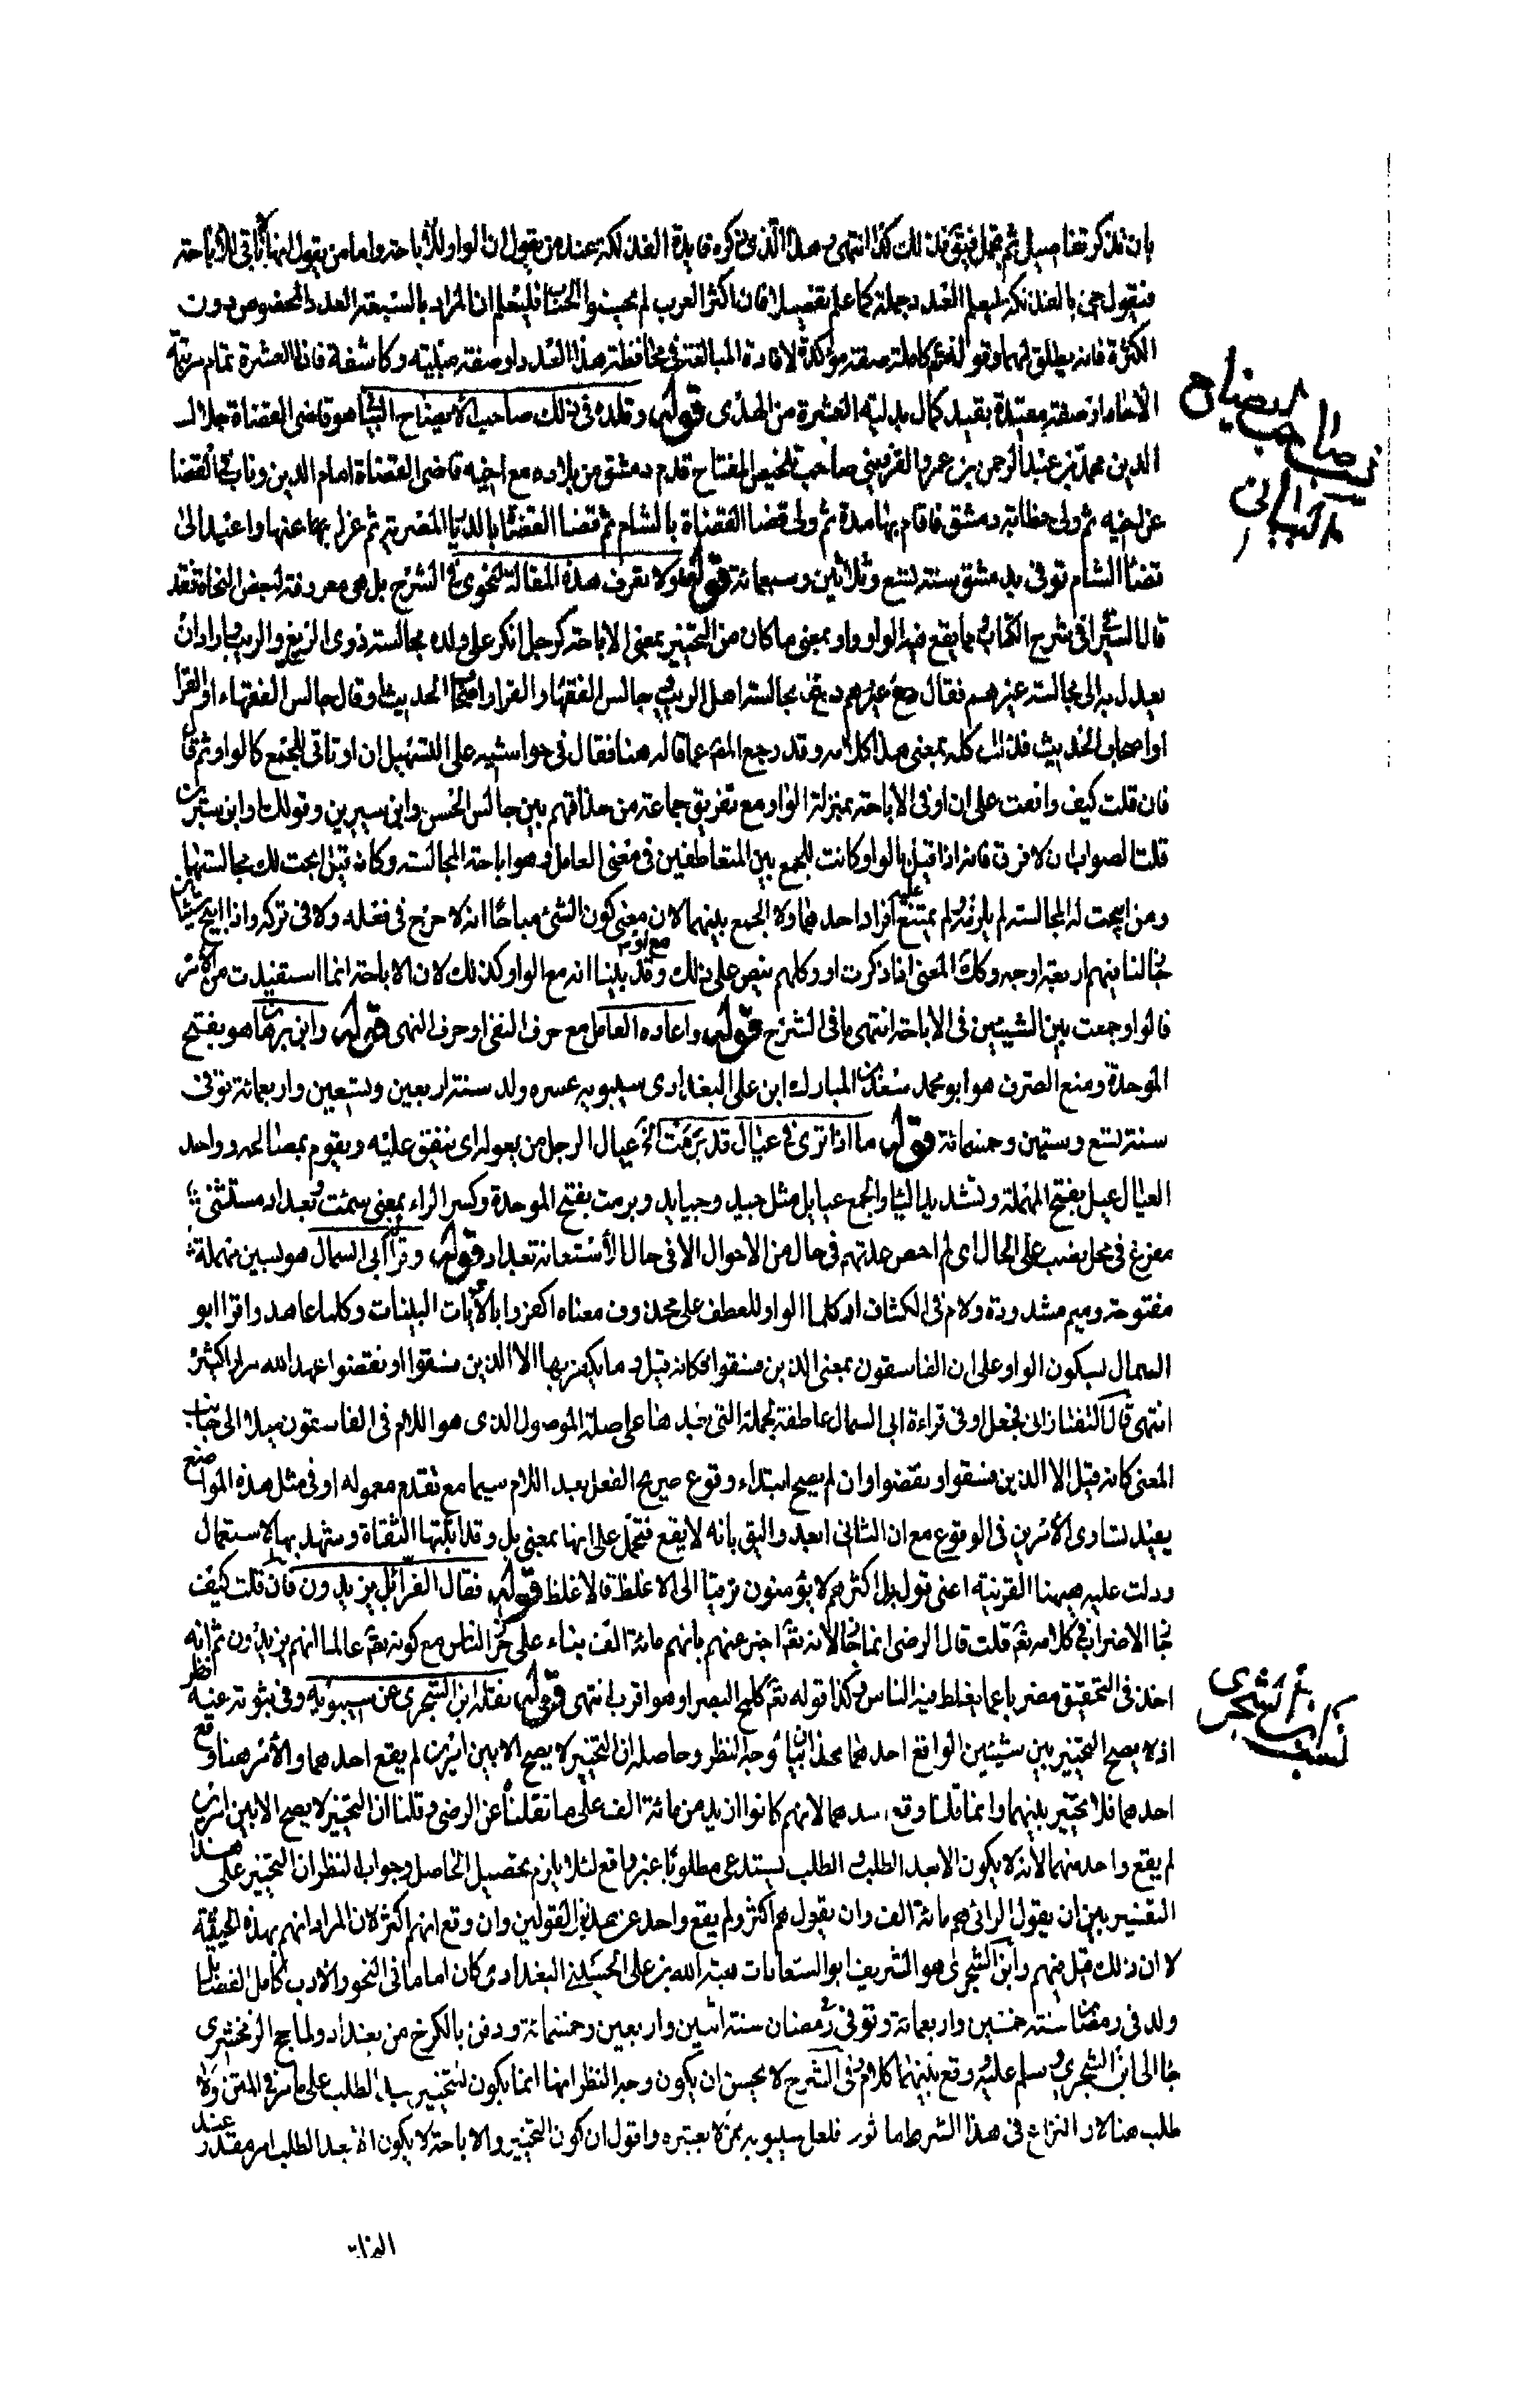 بان تذكر تفاصيل ثم تجمل فيق فذلك كذا انتهى وهذا الذي ذكره فايدة الفذلكة عند من يقول ان الواو للاباحة واما من يقول انها تاتي للاباحة
فيقول جي بالفذلكة ليعلم العدد جملة كما علم تفصيلا فان اكثر العرب لم يحسنوا الحساب فليعلم ان المراد بالسبعة العدد المخصوص دون
الكثرة فانه يطلق لهما وقوله تع كاملة صفة مؤكدة لافادة المبالغة في محافظة هذا العدد او صفة مبينة وكاشفة فان العشرة تمام مرتبة
الاحاد او صفة مقيدة بقيد كمال بدلية العشرة من الهدى قوله وقلده في ذلك صاحب الايضاح البياني هو قاضي القضاة جلال
الدين محمد بن عبد الرحمن بن عمر القزويني صاحب تلخيص المفتاح قدم دمشق من بلاده مع اخيه قاضي القضاة امام الدين وناب في القضا
عن اخيه ثم ولى خطابة دمشق فاقام بها مدة ثم ولى قضا القضاة بالشام ثم قضا القضاة بالديار المصرية ثم عزل بها عنها واعيد الى
قضاا الشام توفي بدمشق سنة تسع وثلاثين وسبعمائة قوله ولا تعرف هذه المقالة لنحوي في الشرح بل هي معروفة لبعض النحاة فقد
قال السيرافي في شرح الكتاب مما يقع فيه الواو واو بمعنى ما كان من التخيير بمعنى الاباحة كرجل انكر على ولده مجالسة ذوي الزيغ والريب واراد ان
يعدل به الى مجالسة غيرهم فقال دع مجالسة اهل الريب جالس الفقهاء والقراء واصحاب الحديث او قال جالس الفقهاء او القرا
او اصحاب الحديث فذلك كله بمعنى هذا كلامه وقد رجع المص عما قاله هنا فقال في حواشيه على التسهيل ان او تاتي للجمع كالواو ثم قال
فان قلت كيف وافقت على ان او في الاباحة بمنزلة الواو مع تفريق جماعة من حذاقهم بين جالس الحسن وابن سيرين وقولك او ابن سيرين
قلت الصواب ان لا فرق فانه اذا قيل بالواو كانت للجمع بين المتعاطفين في معنى العامل وهو اباحة المجالسة وكانه قيل ابحت لك مجالستهما
ومن ابيحت له المجالسة لم يلزمه ولم يمتنع عليه افراد احدهما ولا الجمع بينهما لان معنى كون الشئ مباحا انه لا حرج في فعله ولا في تركه واذا ابيح شيئان
فجالسنا منهم اربعة اوجه وكك المعنى اذا ذكرت او وكلهم ينص على ذلك مع او وقد بينا انه مع الواو كذلك لان الاباحة انما استفيدت من الامر
فالواو جمعت بين الشيئين في الاباحة انتهى ما في الشرح قوله واعاده العامل مع حرف النفي او حرف النهي قوله وابن برهان هو بفتح
الموحدة ومنع الصرف هو ابو محمد سعيد بن المبارك ابن علي البغدادي سيبويه عصره ولد سنة اربعين وتسعين واربعمائة توفي
سنة تسع وستين وخمسمائة قوله ما اذا ترى في عيال قد برمت الخ عيال الرجل من يعوله اي ينفق عليه ويقوم بمصالحه وواحد
العيال عيل بفتح المهملة وتشديد الياء والجمع عيايل مثل جيد وجيايد وبرمت بفتح الموحدة وكسر الراء بمعنى سئمت وتعداد مستثنى
مفرغ في محل نصب على الحال اي لم احص عدتهم في حال من الاحوال الا في حال الاستعانة بعداد قوله وقرا ابي السمال هو بسين مهملة
مفتوحة وميم مشددة ولام في الكشاف او كلما الواو للعطف على محذوف معناه اكفروا بالايات البينات وكلما عاهدوا قرا ابو
السمال بسكون الواو على ان الفاسقون بمعنى الذين فسقوا فكانه قيل وما يكفر بها الا الذين فسقوا او نقضوا عهد الله مرارا كثيرة
انتهى قال التفتازاني فجعل او في قراءة ابي السمال عاطفة لجملة التي بعدها على صلة الموصول الذي هو اللام في الفاسقون ميلا الى جانب
المعنى كانه قيل الا الذين فسقوا او نقضوا وان لم يصح ابتداء وقوع صريح الفعل بعد اللام سيما مع تقدم معموله او في مثل هذه المواضع
يفيد تساوي الامرين في الوقوع مع ان الثاني ابعد واليق بانه لا يقع فتحمل على انها بمعنى بل وقد اثبتها الثقاة وشهد بها الاستعمال
ودلت عليه ههنا القرينة اعني قوله بل اكثرهم لا يؤمنون ترقيا الى الاغلظ فالاغلظ قوله فقال الفرا بل يزيدون فان قلت كيف
جا الاضراب في كلامه تع قلت قال الرضي انما جا لانه تع اخبر عنهم بانهم مائة الف بناء على حزر الناس مع كونه تع عالما انهم يزيدون ثم انه
اخذ في التحقيق مضربا عما يغلط فيه الناس وكذا قوله تع كلمح البصر او هو اقرب انتهى قوله نقله ابن الشجري عن سيبويه وفي ثبوته عنه نظر
اذ لا يصح التخيير بين شيئين الواقع احدهما هذا بيان وجه النظر وحاصله ان التخيير لا يصح الا بين امرين لم يقع احدهما والامر هنا وقع
احدهما فلا تخيير بينهما وانما قلنا وقع احدهما لانهم كانوا ازيد من مائة الف على ما نقلناه عن الرضي وقلنا ان التخيير لا يصح الا بين امرين
لم يقع واحد منهما لانه لا يكون الا بعد الطلب والطلب يستدعى مطلوبا غير واقع لئلا يلزم تحصيل الحاصل وجواب النظر ان التخيير على هذا
التفسير بين ان يقول الرائي هم مائة الف وان يقول هم اكثر ولم يقع واحد من هذين القولين وان وقع انهم اكثر لان المراد انهم بهذه الحيثية
لا ان ذلك قيل منهم وابن الشجري هو الشريف ابو السعادات هبة الله بن علي الحسيني البغدادي كان اماما في النحو والادب كامل الفضايل
ولد في رمضان سنة خمسين واربعمائة وتوفي في رمضان سنة اثنين واربعين وخمسمائة ودفن بالكرخ من بغداد ولما حج الزمخشري
جا الى ابن الشجري وسلم عليه ووقع بينهما كلام وفي الشرح لا يحسن ان يكون وجه النظر انها انما يكون للتخيير بعد الطلب على ما مر في المتن ولا
طلب هنا لان النزاع في هذا الشرط ماثور فلعل سيبويه ممن لا يعتبره واقول ان كون التخيير والاباحة لا يكون الا بعد الطلب امر مقدر عند
صاحب الايضاح
ابن الشجري